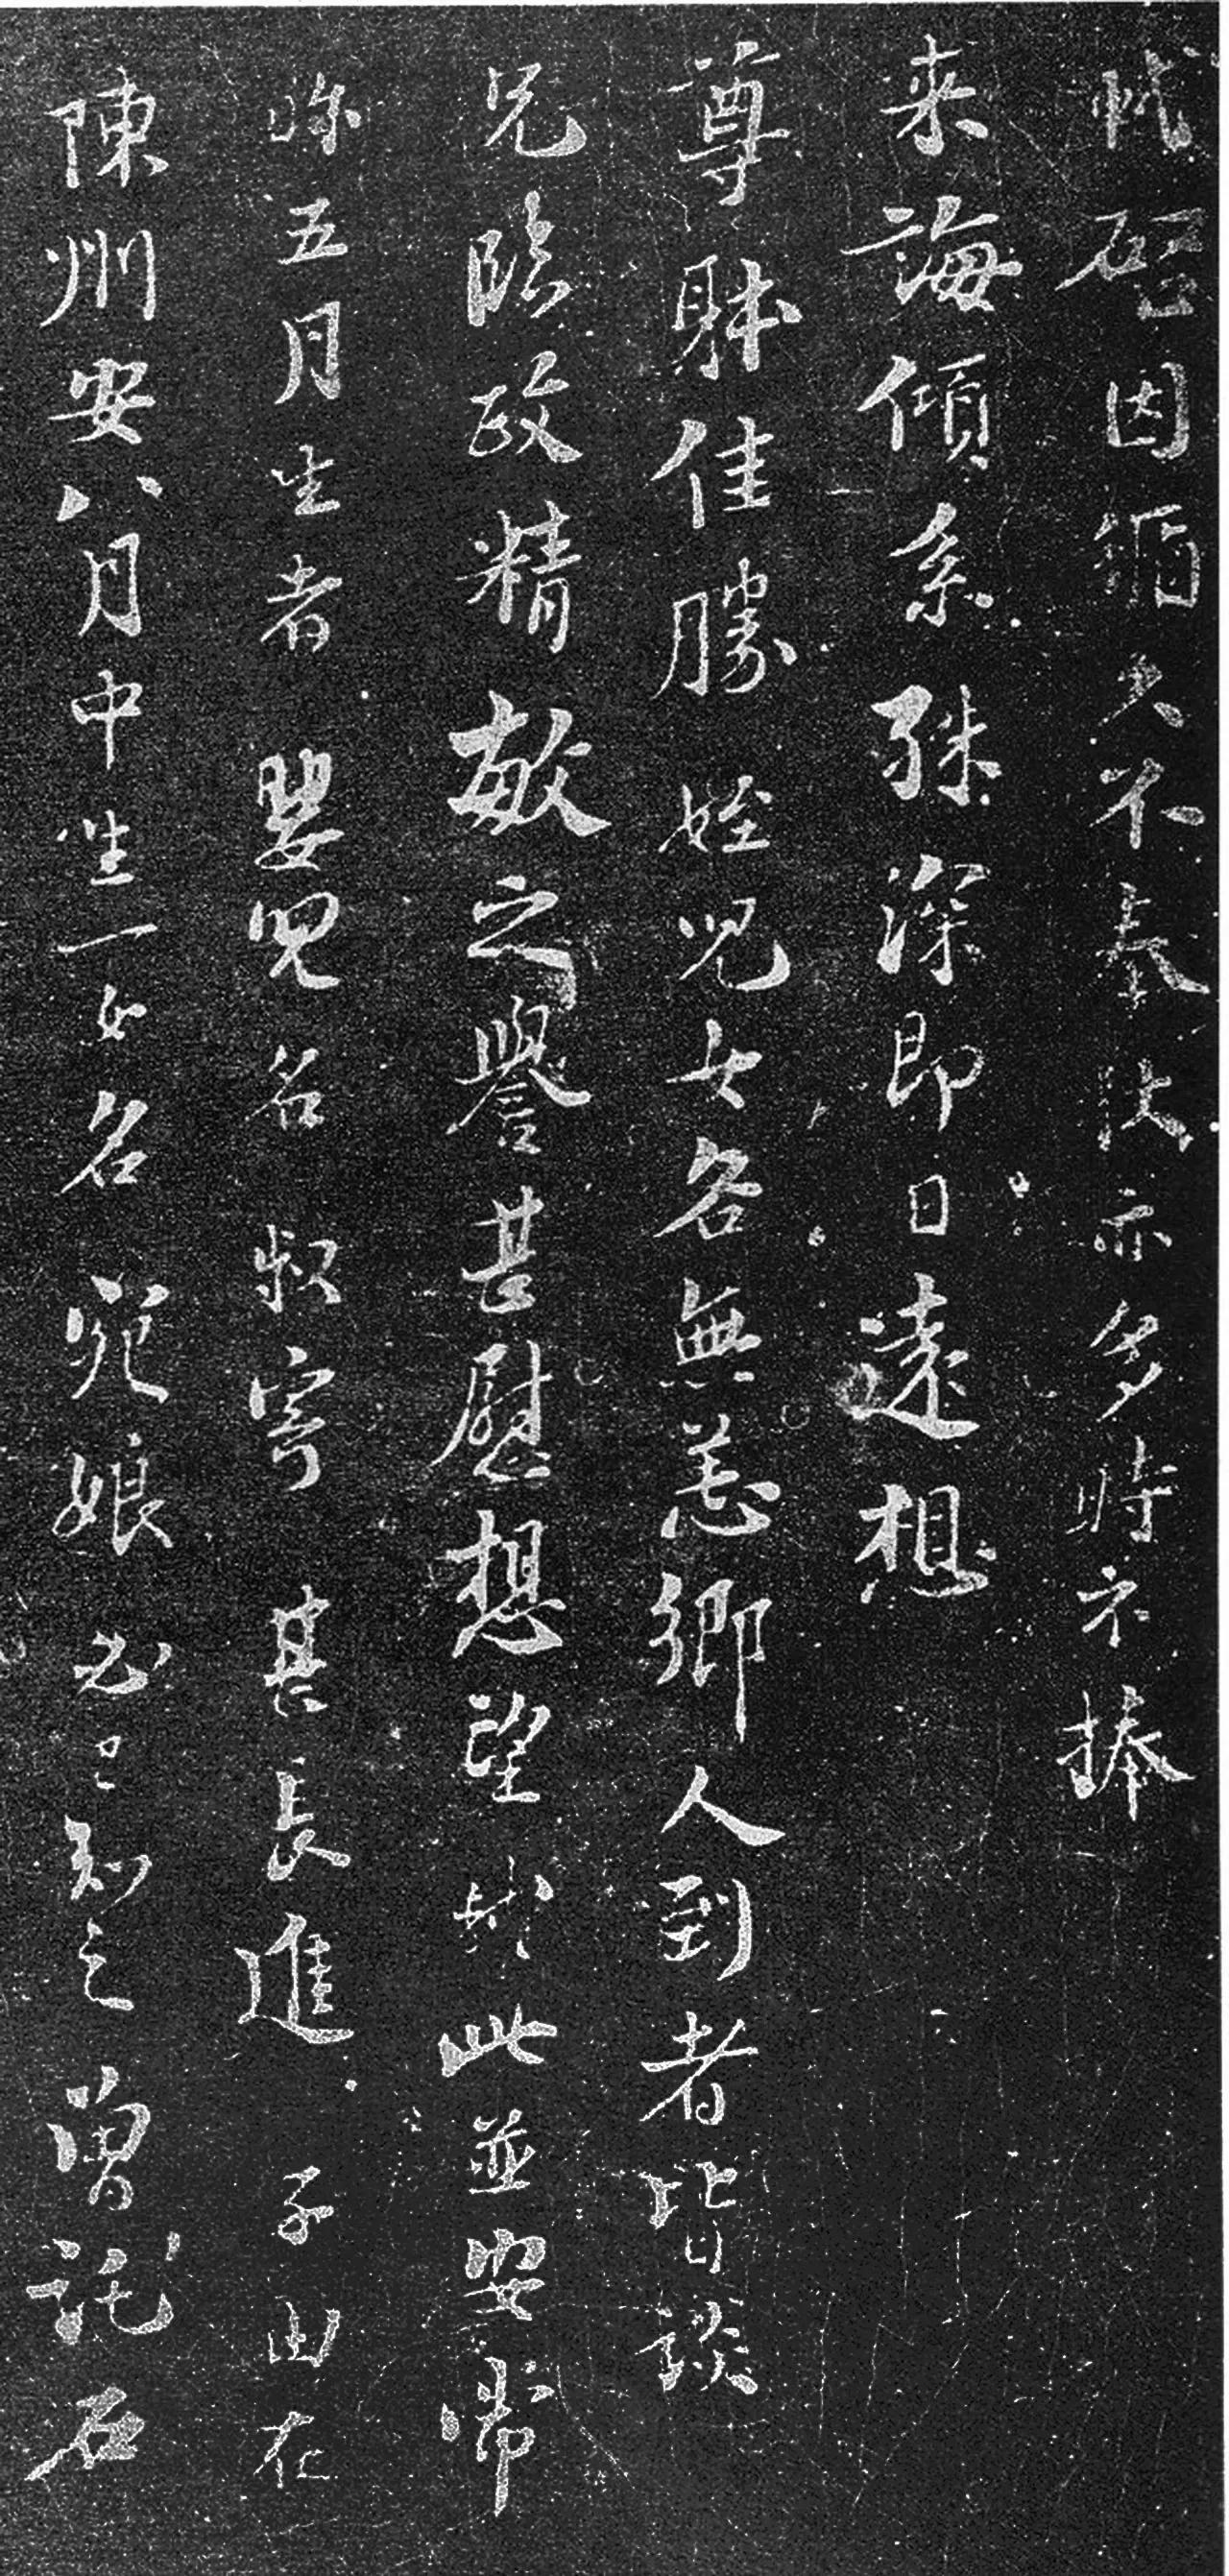 軾啓因循久不奉狀亦多時不捧
来誨傾系殊深即日遠想
尊躰佳勝姪兒女各無恙鄉人到者皆談
兄臨政精敏之譽甚慰想望軾此並安常
五月生者嬰兒名叔寄甚長進子由在
陳州安八月中生一女名宛娘必已知之曾託石